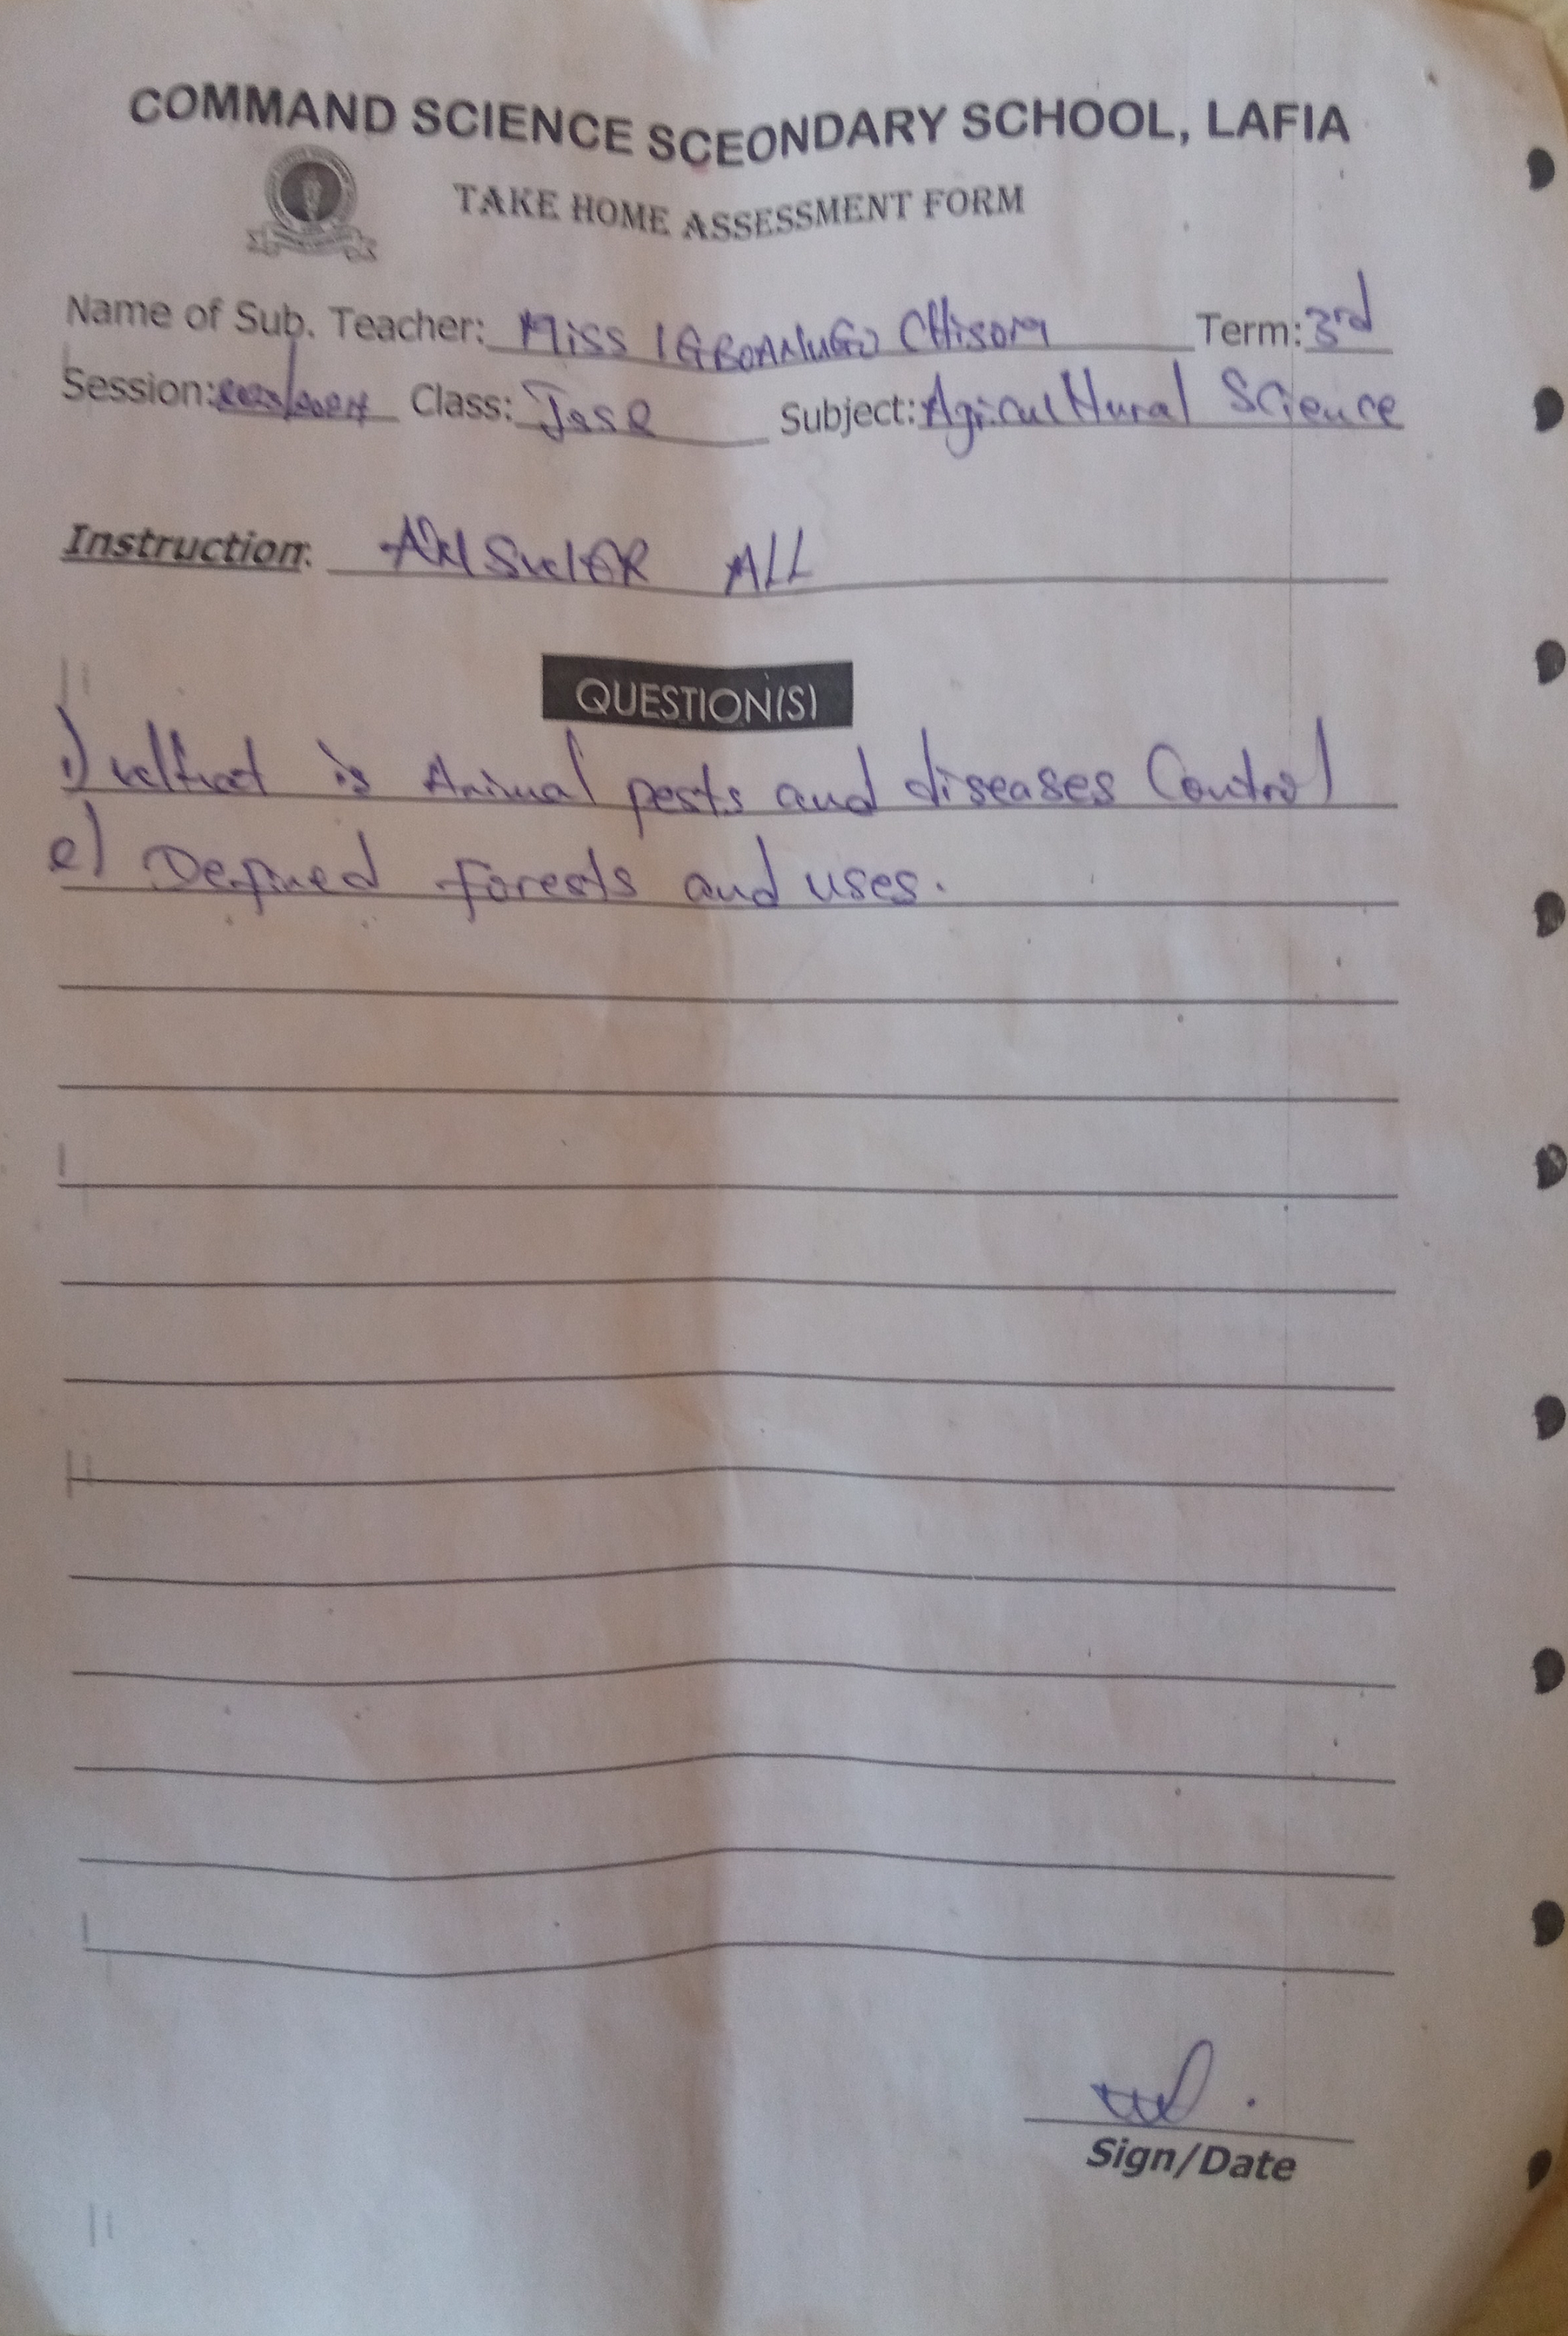 COMMAND SCIENCE SCEONDARY SCHOOL, LAFIA
TAKE HOME ASSESSMENT FORM
Name of Sub. Teacher: Miss IGBOANUGO CHisom Term: 3rd
Session: 2023/2024 Class: Jss2 Subject: Agricultural Science
Instruction: ANSWER ALL
QUESTION(S)
1) what is Animal pests and diseases Control
2) Defined forests and uses.
Sign/Date